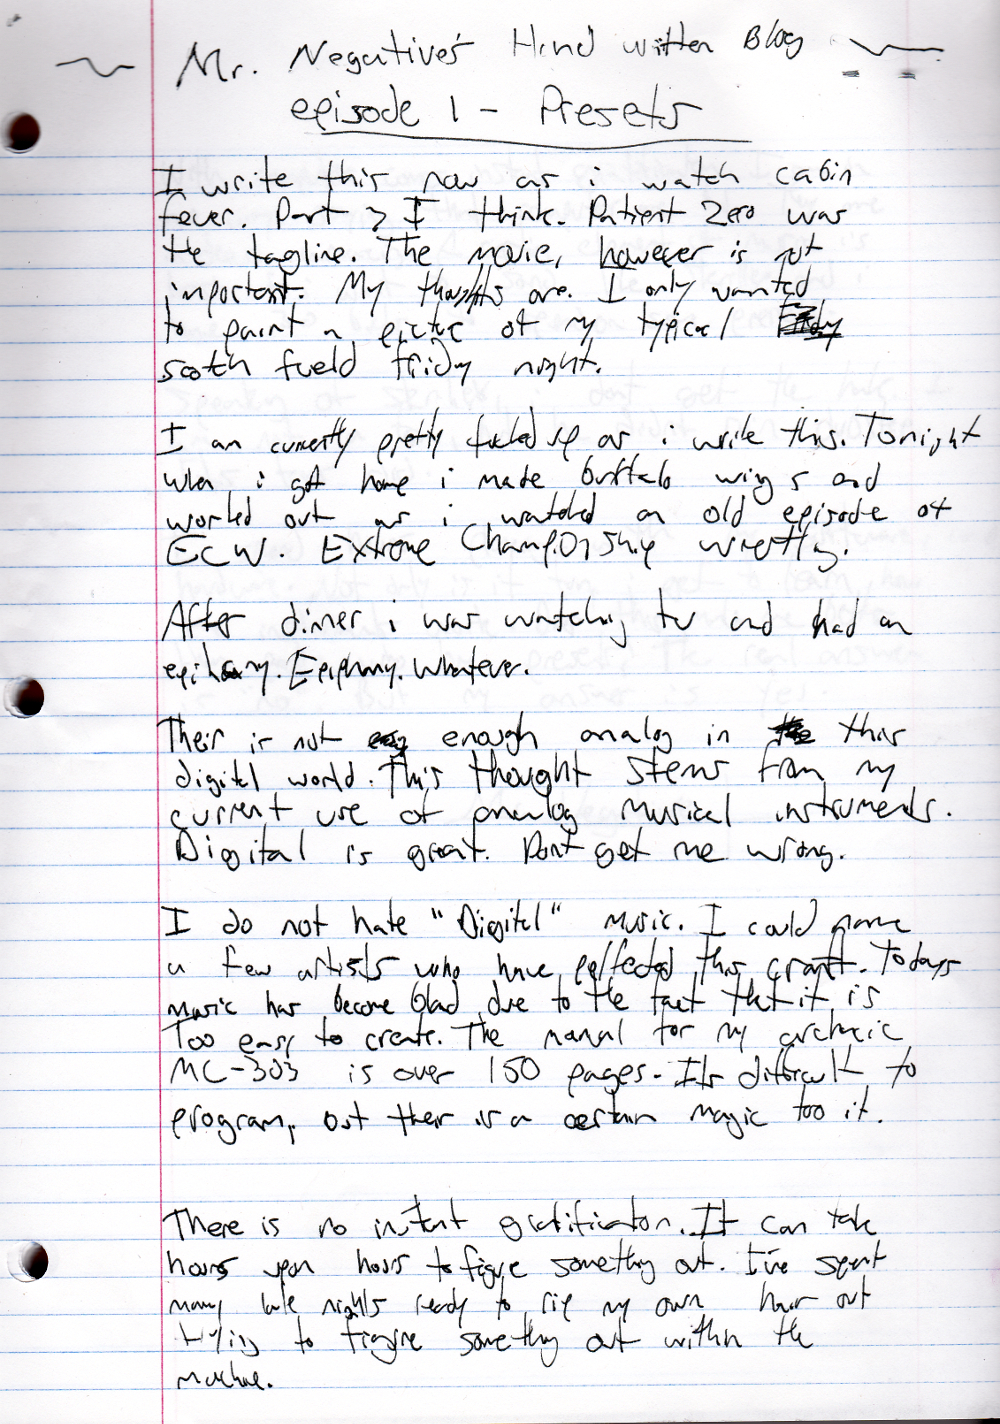 Mr. Negative's Hand written Blog
episode 1 - Presets
I write this now as i watch cabin
fever. Part 3 I think. Patient Zero was
the tagline. The movie, however is not
important. My thoughts are. I only wanted
to paint a picture of my typical
scotch fueld friday night.
I am currently pretty fueled up as i write this. Tonight
when i got home i made buffalo wings and
worked out as i watched an old episode of
ECW. Extreme Championship wrestling.
After dinner i was watching tv and had an
epihany. Epiphany. Whatever.
Their is not enough analog in this
digital world. This thought stems from my
current use of analog musical instruments.
Digital is great. Dont get me wrong.
I do not hate "Digital" music. I could name
a few artists who have perfected this craft. Todays
music has become bad due to the fact that it is
Too easy to create. The manual for my archaic
MC-303 is over 150 pages. Its difficult to
program, but their is a certain magic too it.
There is no instant gratification. It can take
hours upon hours to figure something out. I've spent
many late nights ready to rip my own hair out
trying to figure something out within the
machine.